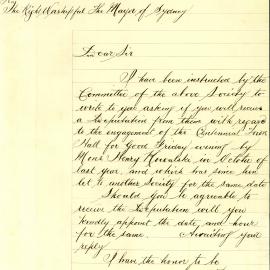 The Right Worshipful The Mayor of Sydney
Dear Sir
I have been instructed by the
Committee of the above Society to
write to you asking if you will receive
a Deputation from them with regard
to the engagement of the Centennial
Hall for Good Friday evening by
Henry in October of
last year, and which has since been
let to another Society for the same date
Should you be agreeable to
receive the Deputation will you
kindly appoint the date and hour
for the same. Awaiting your
reply
I have the honor to be